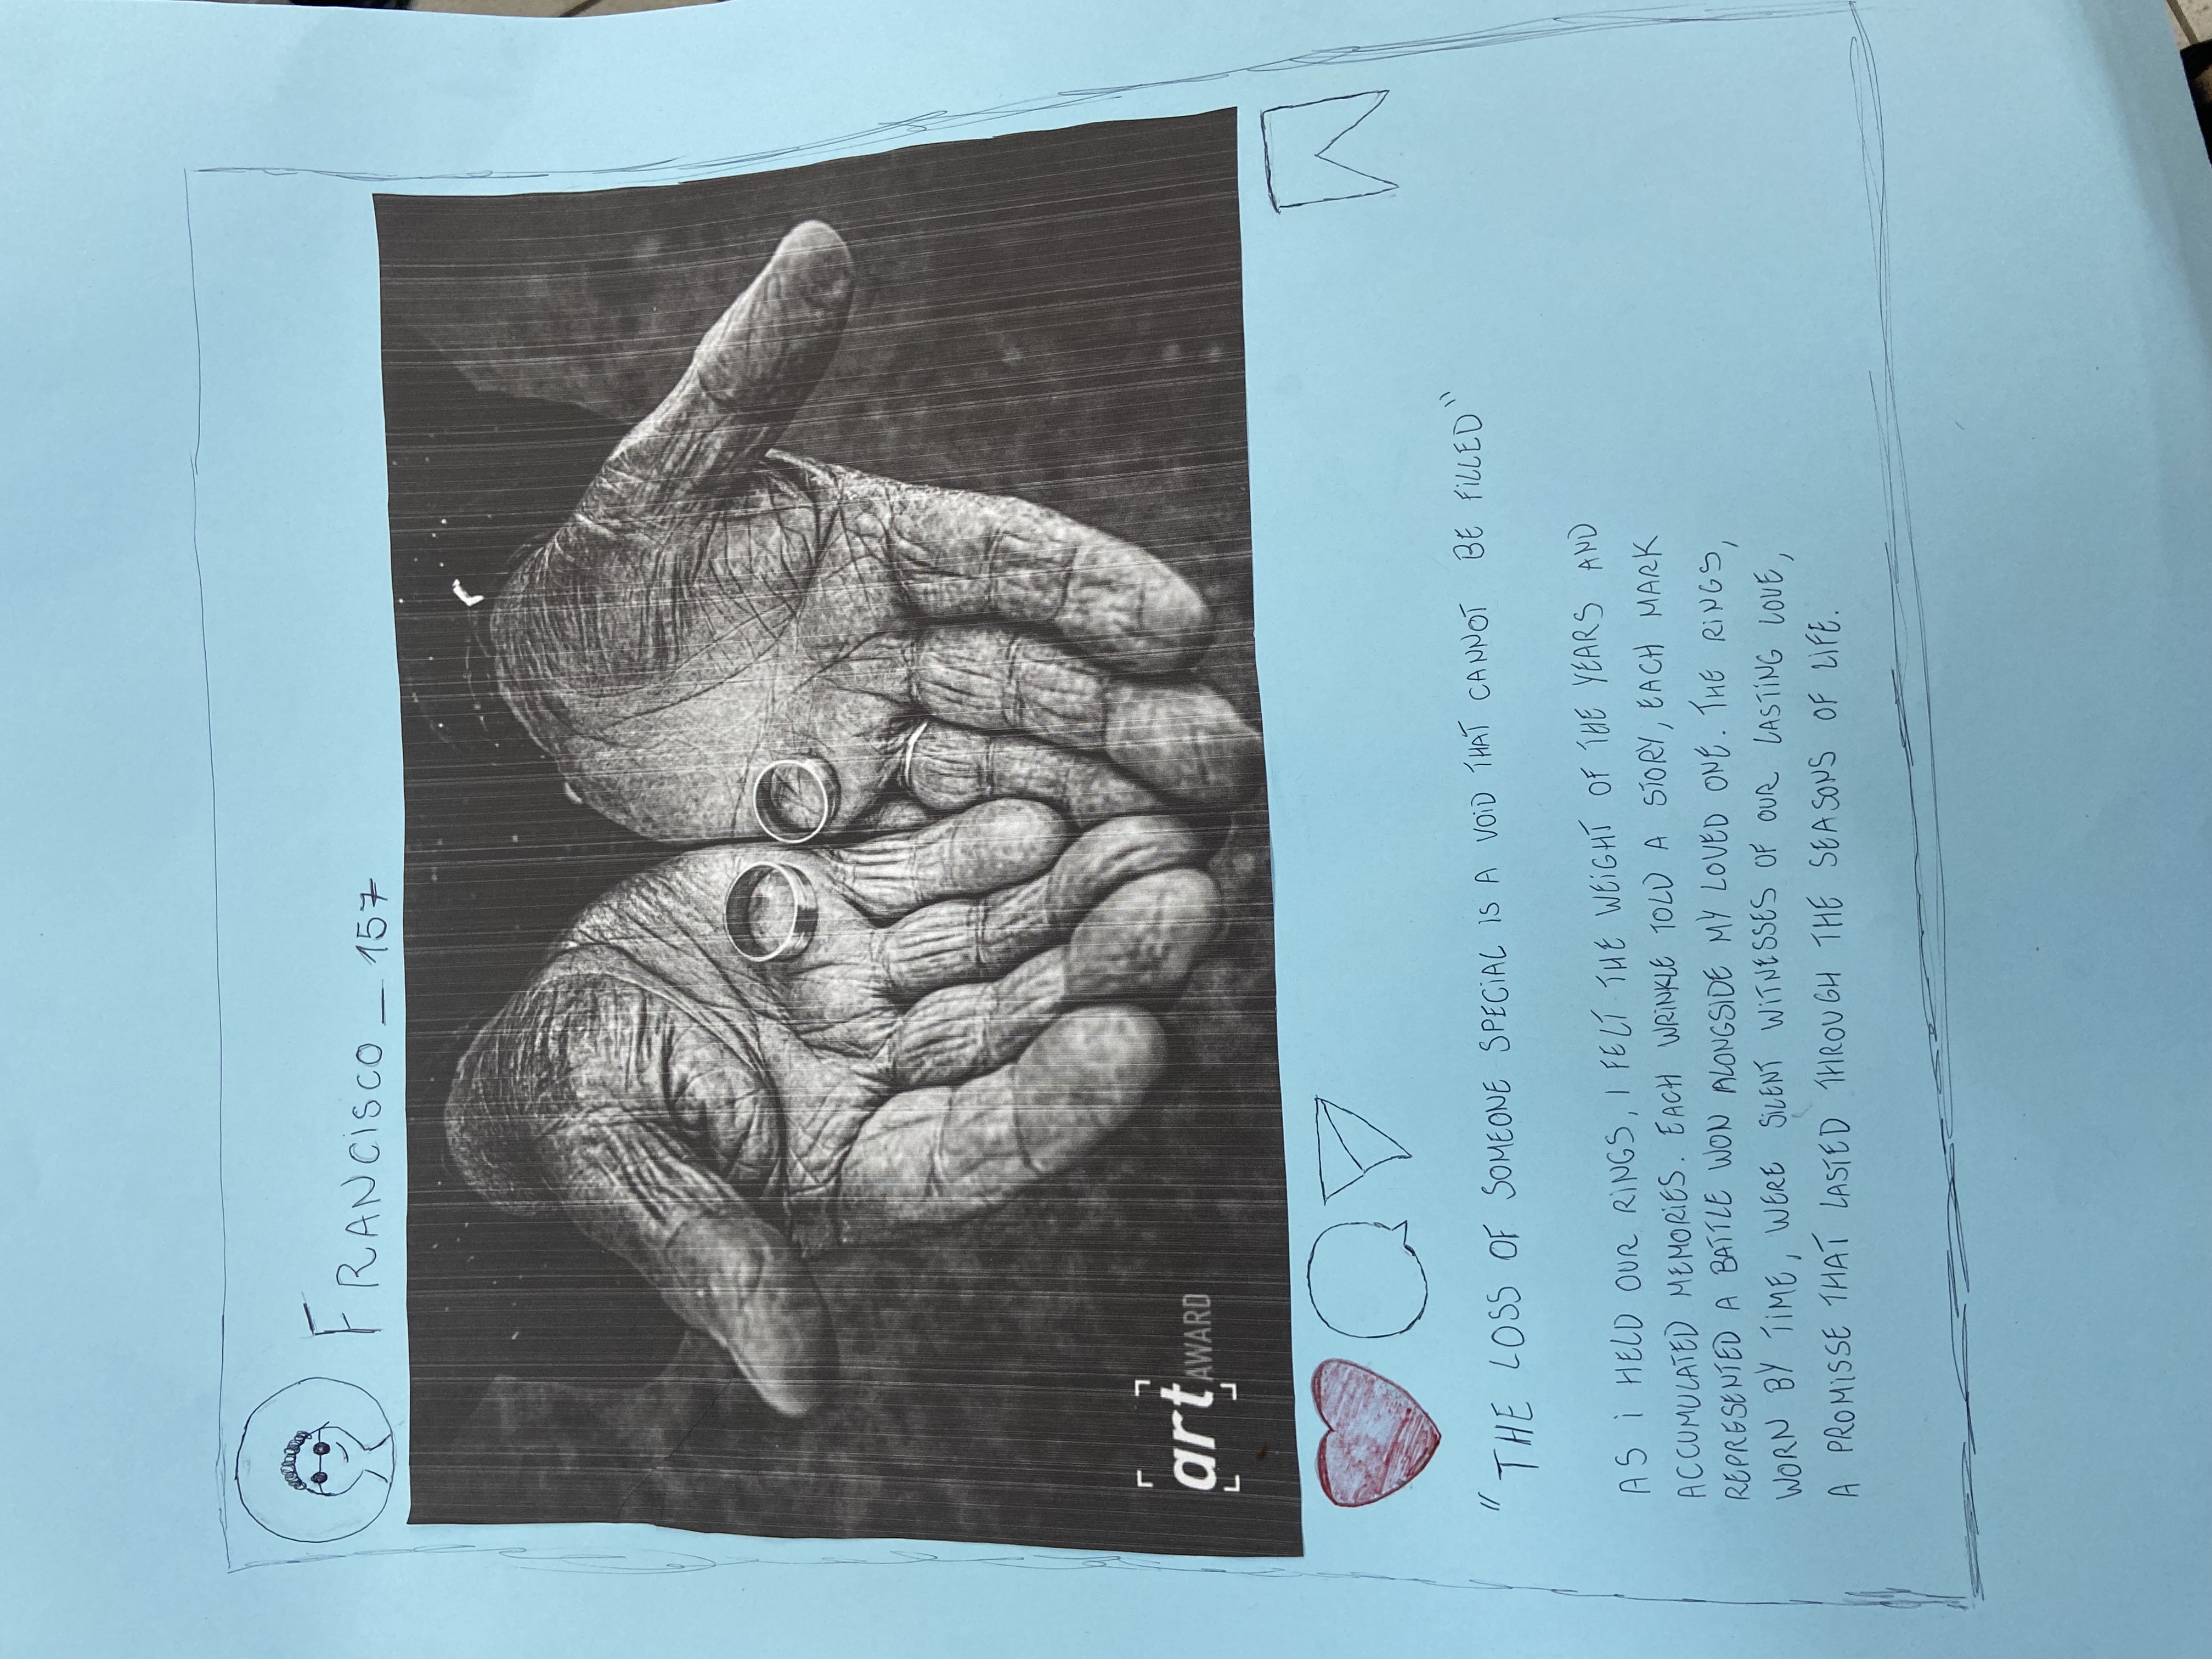 FRANCISCO_157
art AWARD
"THE LOSS OF SOMEONE SPECIAL IS A VOID THAT CANNOT BE FILLED"
AS I HELD OUR RINGS, I FELT THE WEIGHT OF THE YEARS AND
ACCUMULATED MEMORIES. EACH WRINKLE TOLD A STORY, EACH MARK
REPRESENTED A BATTLE WON ALONGSIDE MY LOVED ONE. THE RINGS,
WORN BY TIME, WERE SILENT WITNESSES OF OUR LASTING LOVE,
A PROMISSE THAT LASTED THROUGH THE SEASONS OF LIFE.